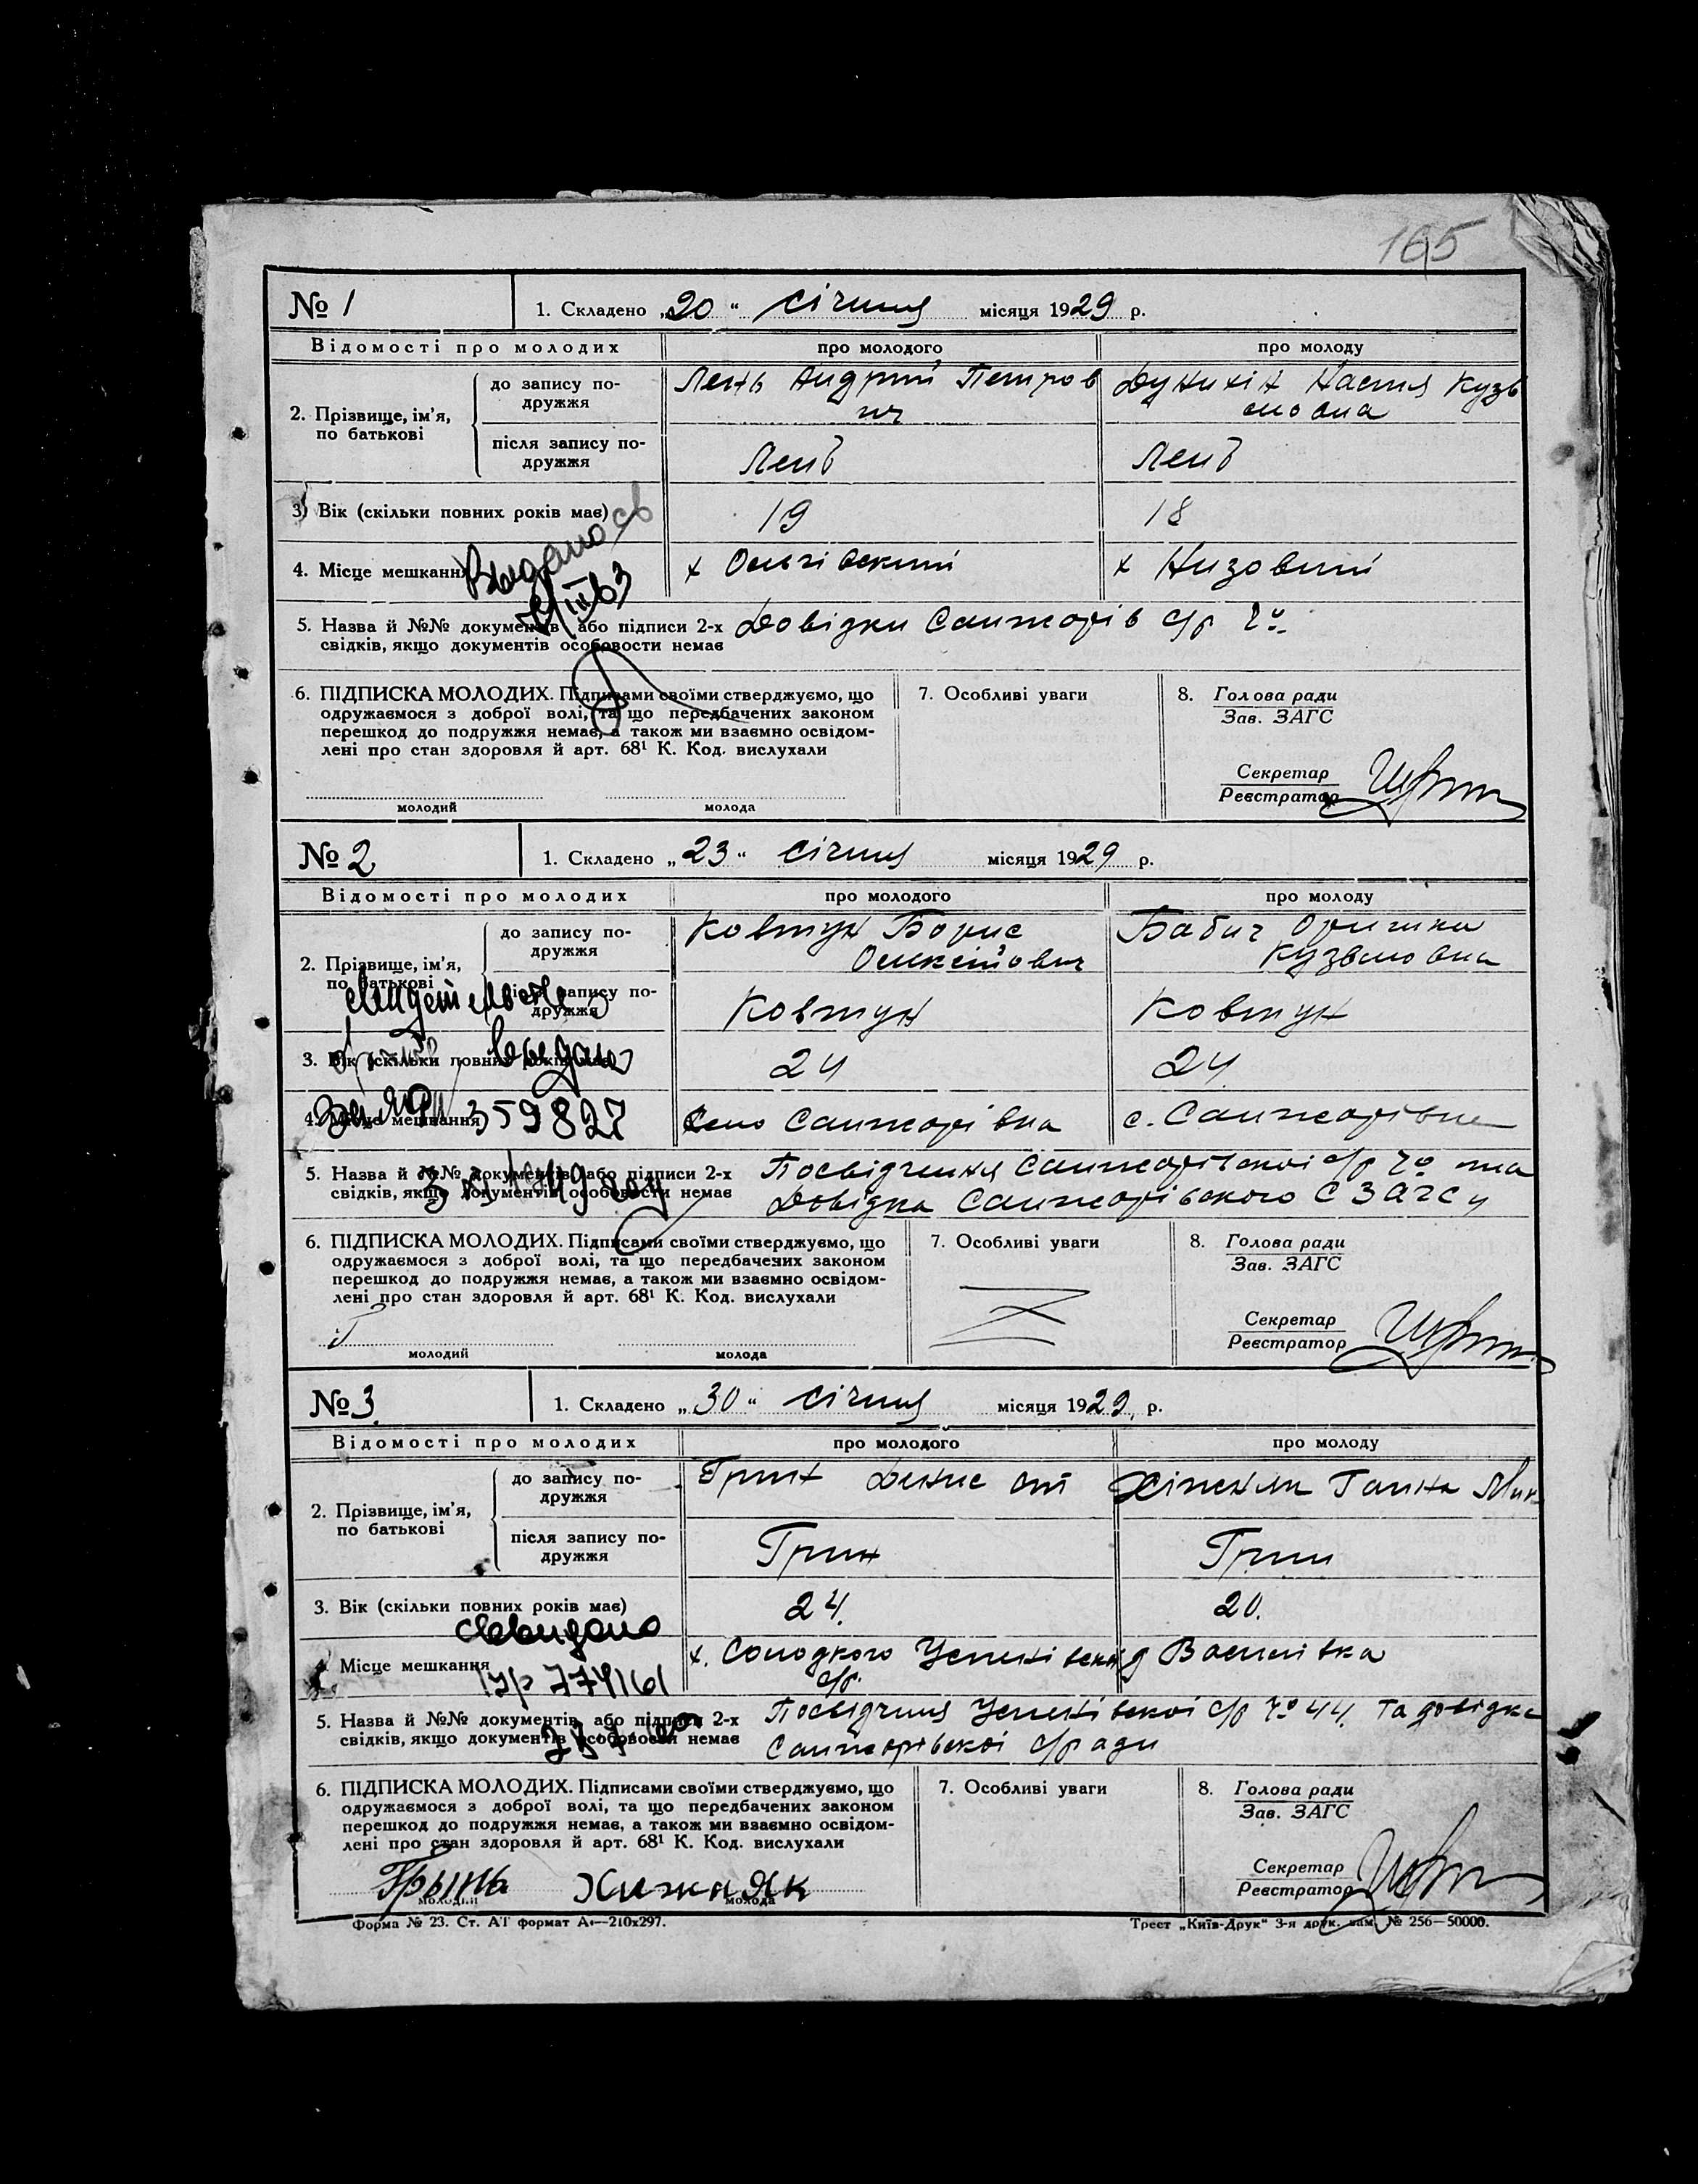 165
№ 1
1. Складено „20“ січня місяця 1929 р.
Відомості про молодих про молодого про молоду
2. Прізвище, ім’я, по батькові
до запису подружжя Лень Андрий Петров ич Настя Кузь мовна
після запису подружжя Лень Лень
3) Вік (скільки повних років має) 19 18
Выдано св
4. Місце мешкання х Ольгівский х Низовий
5. Назва й №№ документів або підписи 2-х Довідки Санжарів с/р
свідків, якщо документів особовости немає
6. ПІДПИСКА МОЛОДИХ. Підписами своїми стверджуємо, що 7. Особливі уваги 8. Голова ради
одружаємося з доброї волі, та що передбачених законом Зав. ЗАГС
перешкод до подружжя немає, а також ми взаємно освідом-
лені про стан здоровля й арт. 68¹ К. Код. вислухали
Секретар
Реєстратор
молодий молода
№ 2
1. Складено „23“ січня місяця 1929 р.
Відомості про молодих про молодого про молоду
2. Прізвище, ім’я, по батькові
до запису подружжя Ковтун Борис Бабич Оришка Кузьмовна
після запису подружжя Ковтун Ковтун
3. Вік (скільки повних років має) 24 24
выдано
4. Місце мешкання село Санжарівка с. Санжарівка
359827
5. Назва й №№ документів або підписи 2-х Посвідчення Санжарівскої с/р та
свідків, якщо документів особовости немає Довідка Санжарівського ЗАГСу
6. ПІДПИСКА МОЛОДИХ. Підписами своїми стверджуємо, що 7. Особливі уваги 8. Голова ради
одружаємося з доброї волі, та що передбачених законом Зав. ЗАГС
перешкод до подружжя немає, а також ми взаємно освідом-
лені про стан здоровля й арт. 68¹ К. Код. вислухали
Секретар
Реєстратор
молодий молода
№ 3
1. Складено „30“ січня місяця 1929 р.
Відомості про молодих про молодого про молоду
2. Прізвище, ім’я, по батькові
до запису подружжя Грин Денис Ганна
після запису подружжя Грин Грин
3. Вік (скільки повних років має) 24. 20.
4. Місце мешкання х. Солодкого Успенівскої с/р. Василівка
5. Назва й №№ документів або підписи 2-х Посвідчиня Успенівскої с/р № 44. Та довідка
свідків, якщо документів особовости немає Санжарівскої с/ради
6. ПІДПИСКА МОЛОДИХ. Підписами своїми стверджуємо, що 7. Особливі уваги 8. Голова ради
одружаємося з доброї волі, та що передбачених законом Зав. ЗАГС
перешкод до подружжя немає, а також ми взаємно освідом-
лені про стан здоровля й арт. 68¹ К. Код. вислухали
Секретар
Реєстратор
Грынь Хижняк
молодий молода
Форма № 23. Ст. АТ формат А₄—210х297. Трест „Київ-Друк“ 3-я друк. зам. № 256—50000.